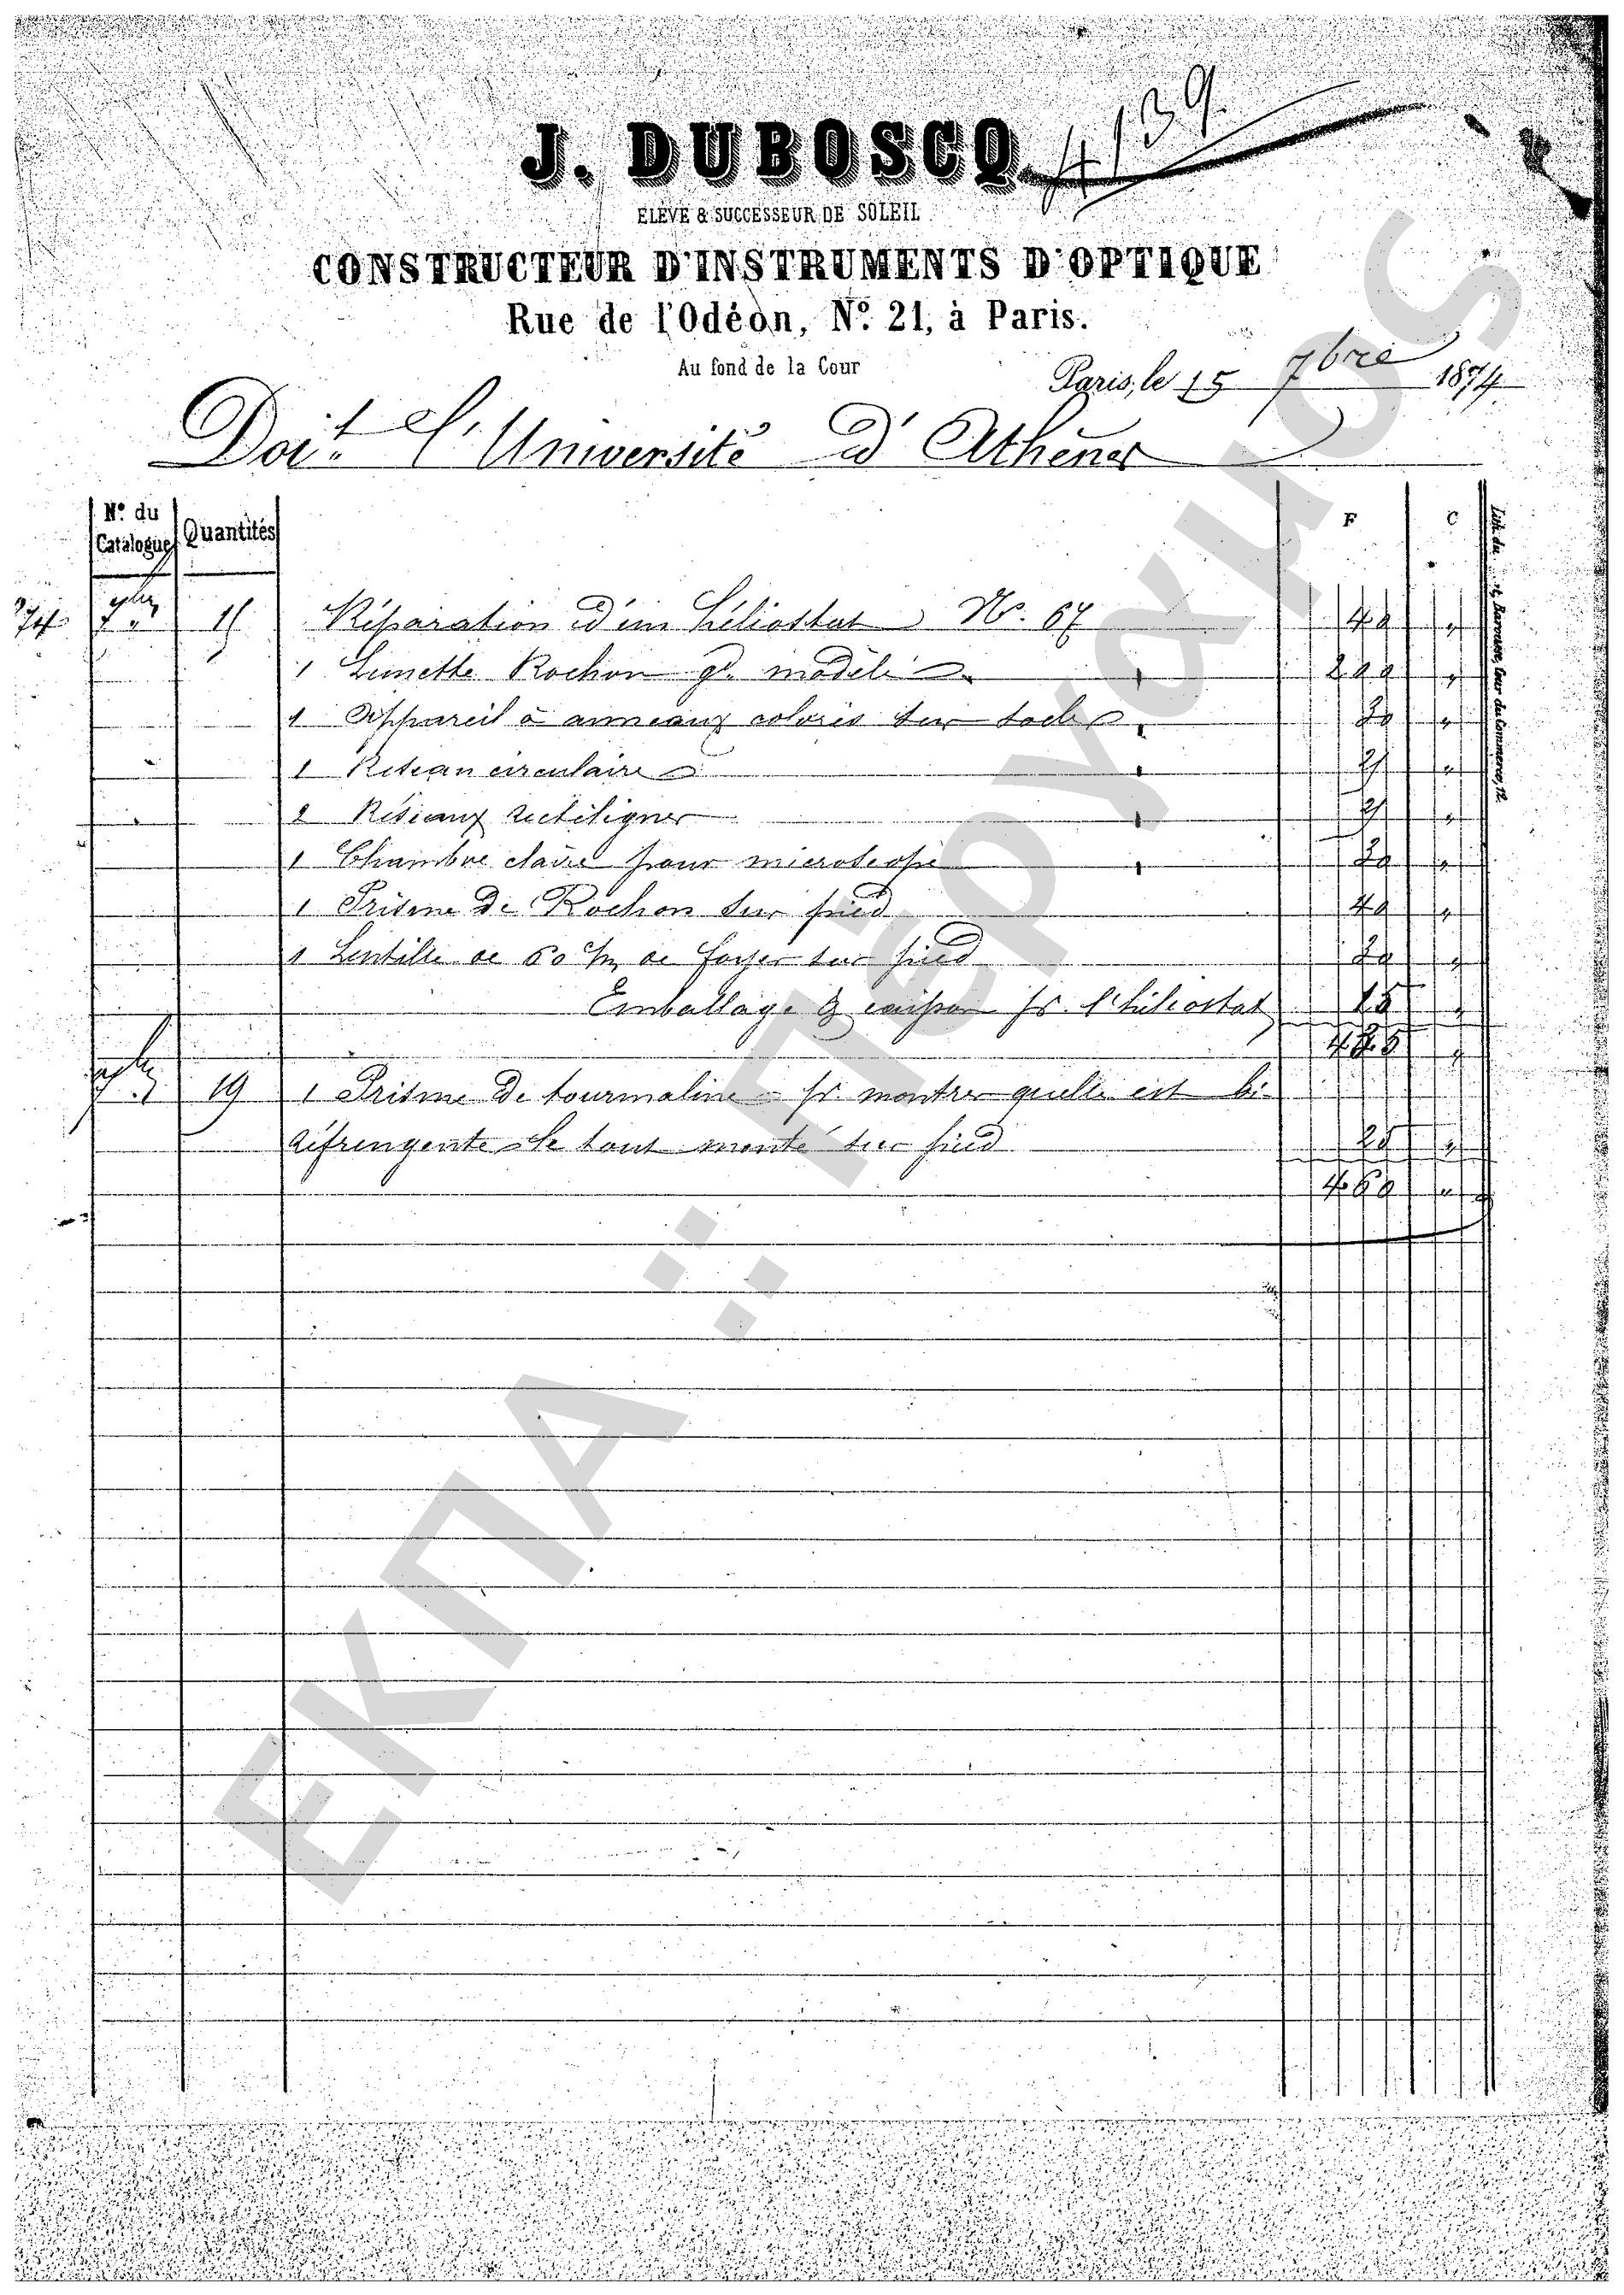 4139
J. DUBOSCQ
ELÈVE & SUCCESSEUR DE SOLEIL
CONSTRUCTEUR D'INSTRUMENTS D'OPTIQUE
Rue de l'Odéon, Nº 21, à Paris.
Au fond de la Cour
Paris, le 15 7bre 1874
Doit l'Université d'Athènes
Nº du Catalogue Quantités F C
74 7bre 15 Réparation d'un héliostat Nº 67 40 "
1 Lunette Rochon gd. modèle 200 "
1 Appareil à anneaux colorés sur socle "
1 Réseau circulaire "
2 Réseaux rectilignes "
1 Chambre claire pour microscope "
1 Prisme de Rochon sur pied 40 "
1 Lentille de 60 c/m de foyer sur pied "
Emballage & caisson pr. l'héliostat 15 "
"
7bre 19 1 Prisme de tourmaline pr. montrer quelle est bi-
réfringente le tout monté sur pied 25 "
460 "
Lith. Barrière, Cour du Commerce, 12.
ΕΚΠΑ :: Πέργαμος